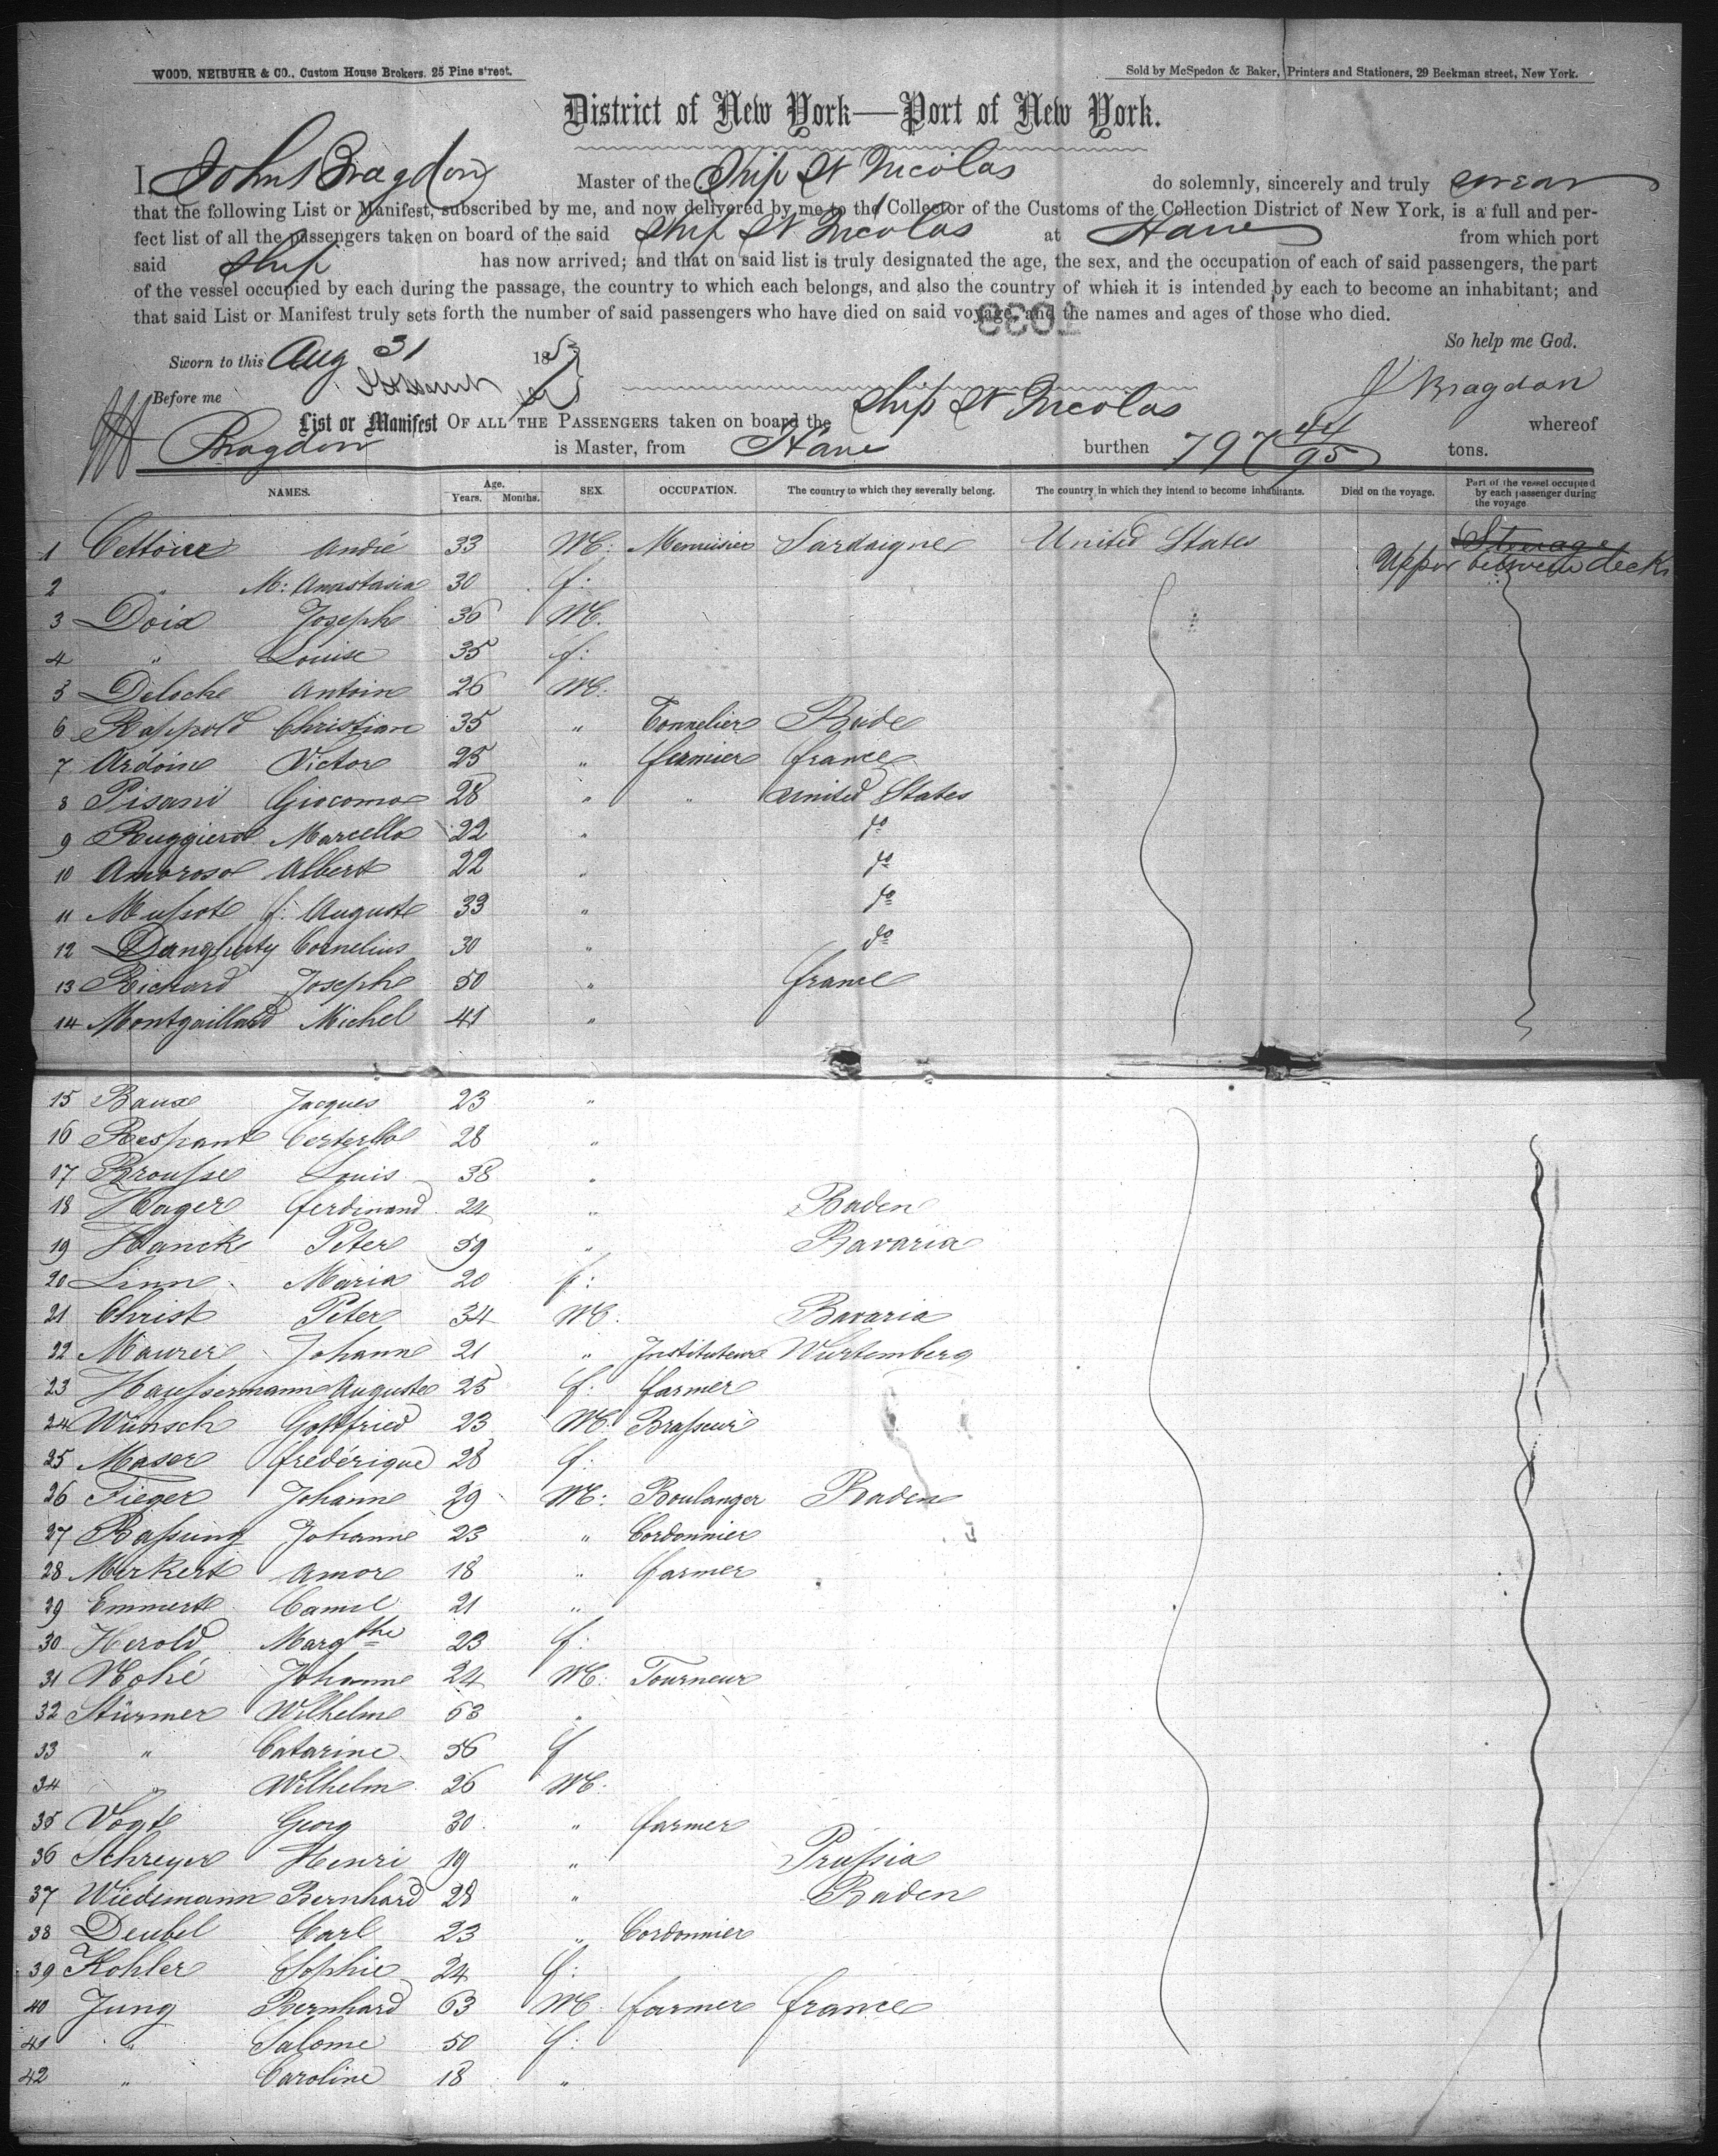 WOOD, NEIBUHR & CO., Custom House Brokers. 25 Pine street.
Sold by McSpedon & Baker, Printers and Stationers, 29 Beekman street, New York.
District of New York—Port of New York.
I, John Bragdon Master of the Ship St Nicolas do solemnly, sincerely and truly swear
that the following List or Manifest, subscribed by me, and now delivered by me to the Collector of the Customs of the Collection District of New York, is a full and per-
fect list of all the passengers taken on board of the said Ship St Nicolas at Havre from which port
said Ship has now arrived; and that on said list is truly designated the age, the sex, and the occupation of each of said passengers, the part
of the vessel occupied by each during the passage, the country to which each belongs, and also the country of which it is intended by each to become an inhabitant; and
that said List or Manifest truly sets forth the number of said passengers who have died on said voyage, and the names and ages of those who died.
So help me God.
Sworn to this Aug 31 1853
J Bragdon
Before me
List or Manifest OF ALL THE PASSENGERS taken on board the Ship St Nicolas whereof
Bragdon is Master, from Havre burthen 797 44/95 tons.
NAMES. Age. Years. Months. SEX. OCCUPATION. The country to which they severally belong. The country in which they intend to become inhabitants. Died on the voyage. Part of the vessel occupied by each passenger during the voyage
1 André 33 M: Menuisier Sardaigne United States Steerage
Upper between decks
2 " M: Anastasia 30 f:
3 Doix Joseph 36 M.
4 " Louise 35 f:
5 Deloche Antoin 26 M:
6 Rappold Christian 35 " Tonnelier Bade
7 Ardoine Victor 25 " fermier france
8 Pisani Giocomo 28 " " United States
9 Ruggiero Marcello 22 " do
10 Amoroso Albert 22 " do
11 Mussot f: Auguste 33 " do
12 Daugherty Cornelius 30 " do
13 Richard Joseph 50 " france
14 Montgaillard Michel 41 "
15 Baux Jacques 23 "
16 Respant 28 "
17 Brousse Louis 38 "
18 Hager ferdinand 24 " Baden
19 Hanck Peter 59 " Bavaria
20 Linn Maria 20 f:
21 Christ Peter 34 M. Bavaria
22 Maurer Johann 21 " Instituteur Wurtemberg
23 Haussermann Auguste 25 f: farmer
24 Wünsch Gottfried 23 M: Brasseur
25 Maser frédérique 28 f:
26 Fieger Johann 29 M: Boulanger Baden
27 Bassung Johann 23 " Cordonnier
28 Merkert Amor 18 " farmer
29 Emmert Camil 21 "
30 Herold Margthe 23 f:
31 Johann 24 M: Tourneur
32 Stürmer Wilhelm 63 "
33 " Catarine 56 f
34 " Wilhelm 26 M:
35 Vogt Georg 30 " farmer
36 Schreyer Henri 19 " Prussia
37 Wiedemann Bernhard 28 " Baden
38 Deubel Carl 23 " Cordonnier
39 Kohler Sophie 24 f:
40 Jung Bernhard 63 M: farmer france
41 " Salome 50 f:
42 " Caroline 18 "